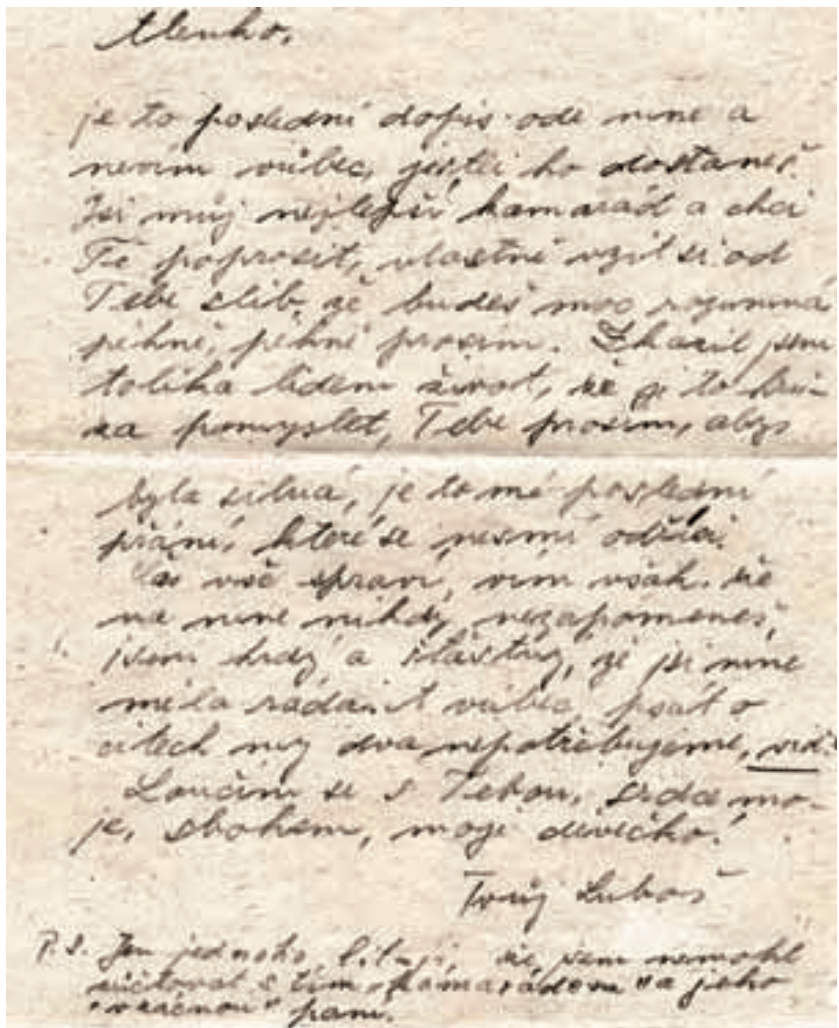 Alenko,
je to poslední dopis ode mne a
nevím vůbec, jestli ho dostaneš.
Jsi můj nejlepší kamarád a chci
Tě poprosit, vlastně vzít si od
Tebe slib, že budeš moc rozumná
pěkně, pěkně prosím. Zkazil jsem
tolika lidem život, že je to hrů-
za pomyslet, Tebe prosím, abys
byla silná, je to mé poslední
přání, které se nesmí odříci.
Čas vše spraví, vím však, že
na mne nikdy nezapomeneš,
jsem hrdý a šťastný, že jsi mne
měla ráda. A vůbec psát o
citech my dva nepotřebujeme, viď.
Loučím se s Tebou, srdce mo-
je, sbohem, moje děvečko!
Tvůj Luboš
P.S. Jen jednoho lituji, že jsem nemohl
súčtovat s tím „kamarádem" a jeho
„vzácnou" paní.